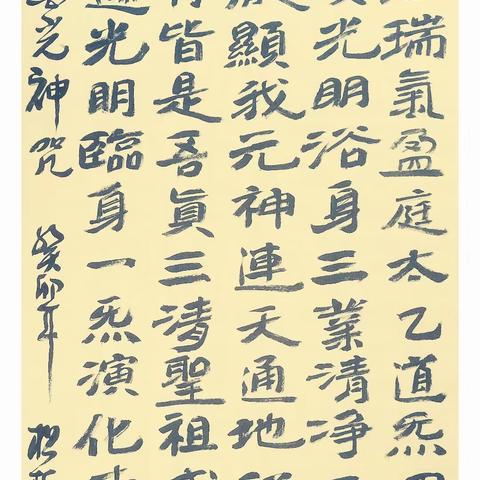 瑞氣盈庭太乙道炁
光明浴身三業清净
顯我元神連天通地
皆是吾真三清聖祖
光明臨身一炁演化
光神咒
癸卯年